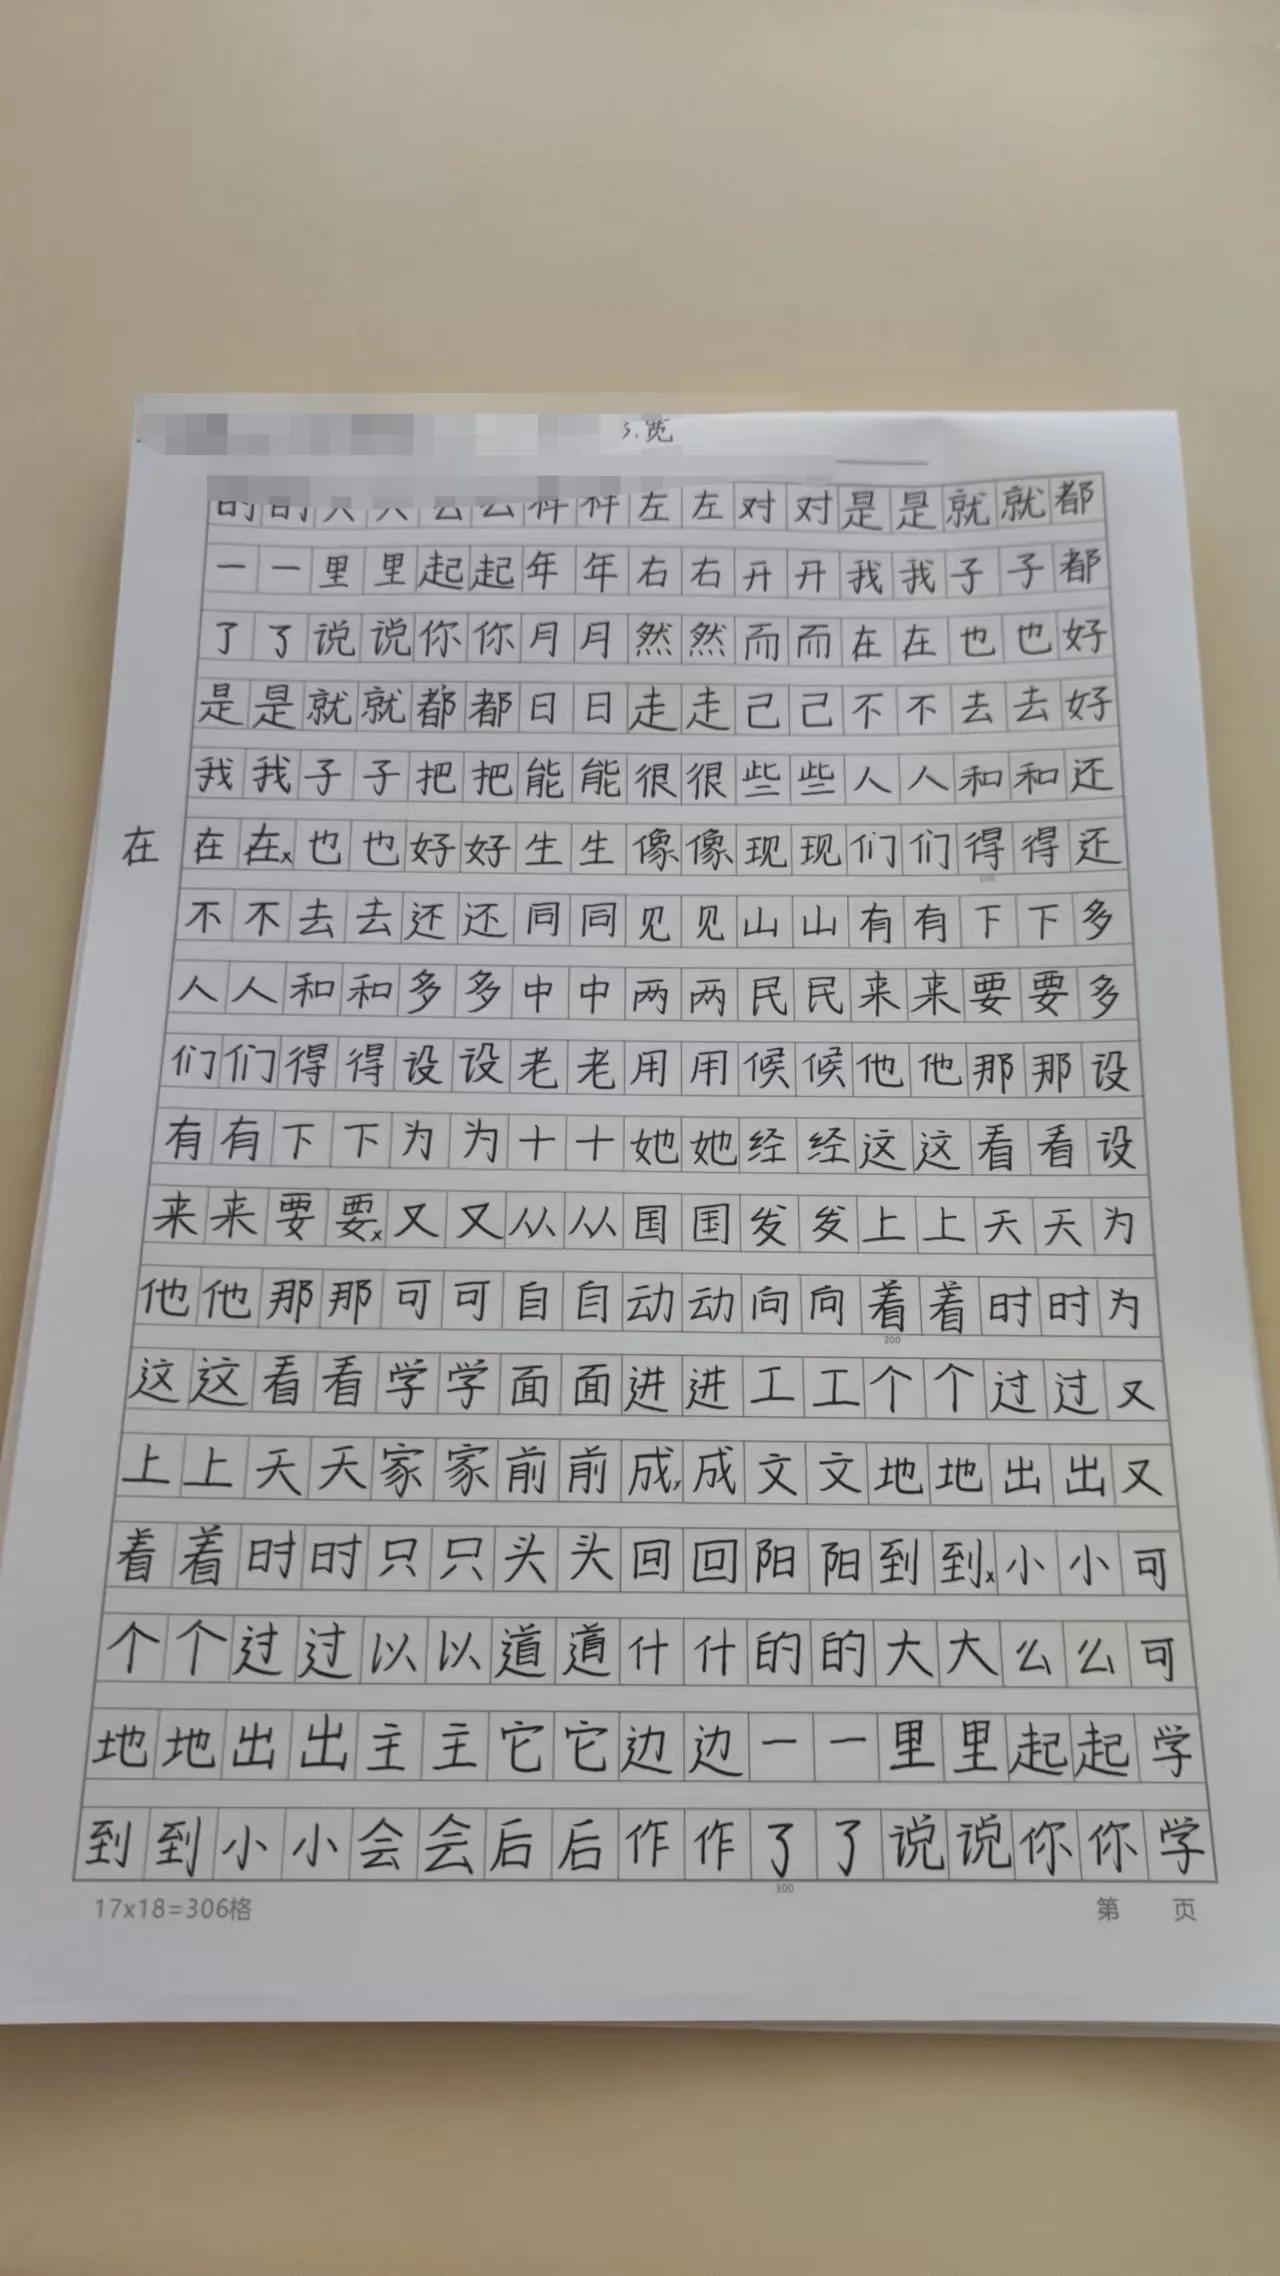 3.宽
的的大大么么样样左左对对是是就就都
一一里里起起年年右右开开我我子子都
了了说说你你月月然然而而在在也也好
是是就就都都日日走走己己不不去去好
我我子子把把能能很很些些人人和和还
在 在在×也也好好生生像像现现们们得得还
100
不不去去还还同同见见山山有有下下多
人人和和多多中中两两民民来来要要多
们们得得设设老老用用候候他他那那设
有有下下为为十十她她经经这这看看设
来来要要×又又从从国国发发上上天天为
他他那那可可自自动动向向着着时时为
200
这这看看学学面面进进工工个个过过又
上上天天家家前前成,成文文地地出出又
着着时时只只头头回回阳阳到到×小小可
个个过过以以道道什什的的大大么么可
地地出出主主它它边边一一里里起起学
到到小小会会后后作作了了说说你你学
300
17x18=306格 第 页